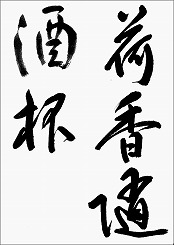 荷香随
酒杯